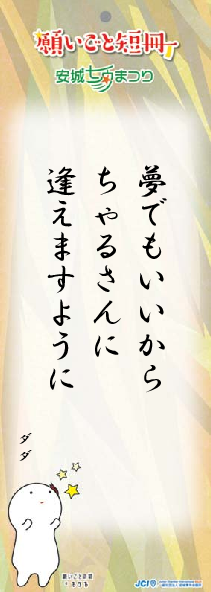 願いごと短冊
安城七夕まつり
夢でもいいから
ちゃるさんに
逢えますように
ダダ
願いごと短冊
JCI